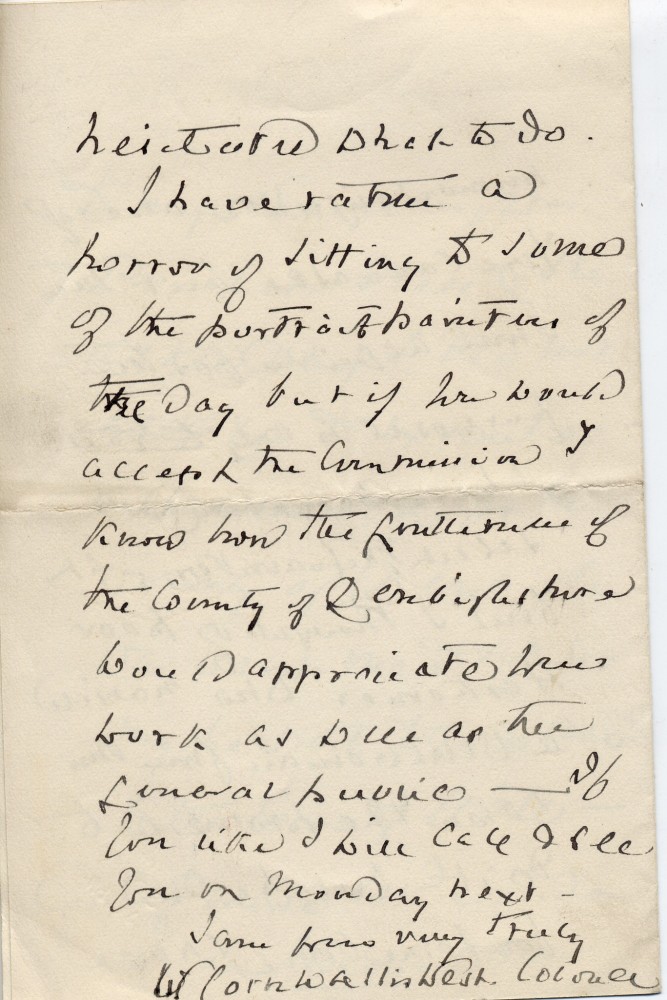 hesitated what to do.
I have rather a
horror of sitting to some
of the portrait painters of
the Day but if he would
accept the Commission I
know how the Gentlemen of
the County of Denbighshire
would appreciate his
work as well as the
general public — If
you like I will call & see
you on Monday next -
I am yours very truly
W Cornwallis West Colonel